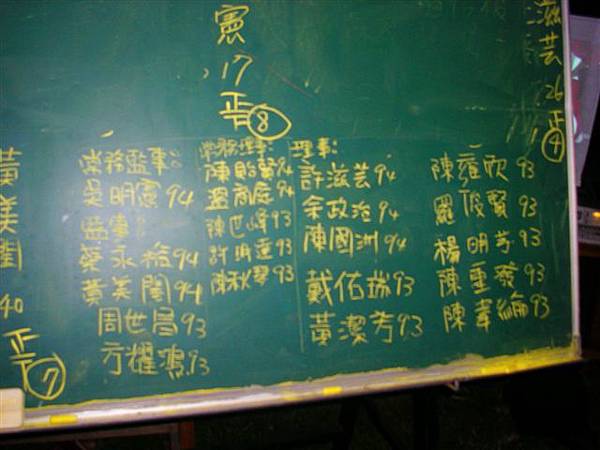 憲
17
正
8
滋
芸
26
正
4
黃
美
40
正
7
常務監事:
吳明憲94
監事:
蔡永裕94
黃美閨94
周世昌93
方耀鴻93
常務理事:
陳貽賢94
陳世峰93
陳秋琴93
理事:
許滋芸94
余政治94
陳國洲94
戴佑瑞93
黃潔芳93
陳雍欣93
羅俊賢93
楊明芳93
陳重發93
陳韋綸93